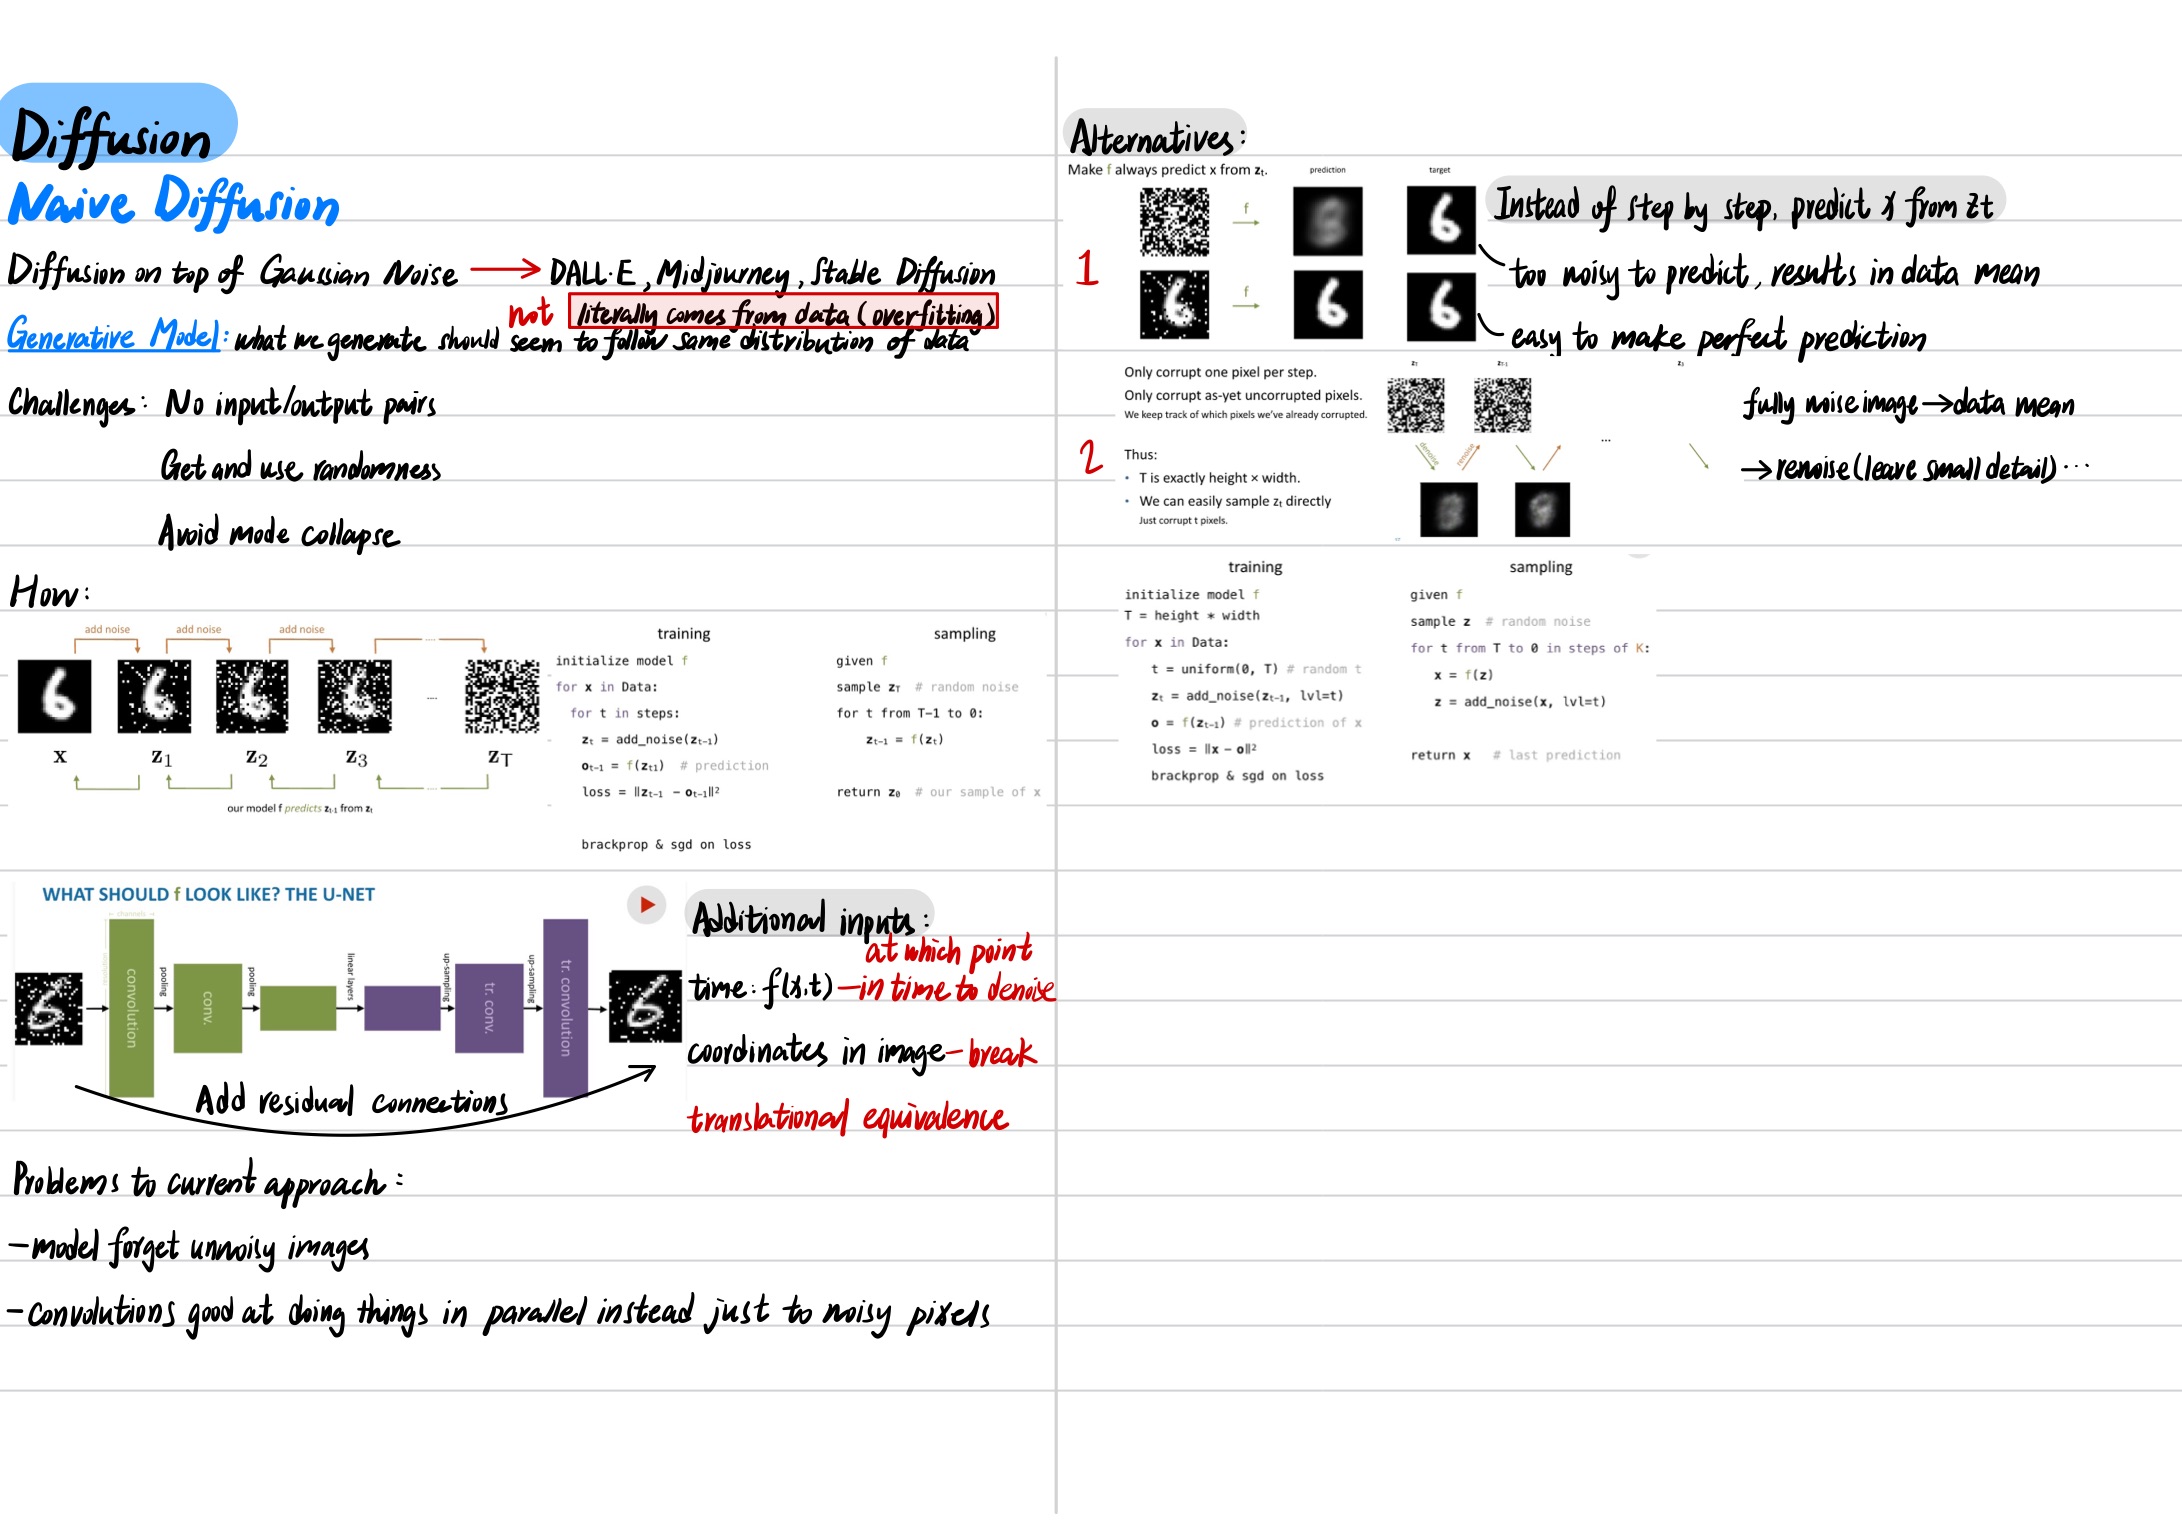 Diffusion
Naive Diffusion
Diffusion on top of Gaussian Noise → DALL·E, Midjourney, Stable Diffusion
not literally comes from data (overfitting)
Generative Model: what we generate should seem to follow same distribution of data
Challenges: No input/output pairs
Get and use randomness
Avoid mode collapse
How:
add noise add noise add noise ....
....
x z₁ z₂ z₃ z_T
....
our model f predicts zₜ₋₁ from zₜ
training
initialize model f
for x in Data:
for t in steps:
zₜ = add_noise(zₜ₋₁)
oₜ₋₁ = f(zₜ₁) # prediction
loss = ‖zₜ₋₁ − oₜ₋₁‖²
brackprop & sgd on loss
sampling
given f
sample z_T # random noise
for t from T−1 to 0:
zₜ₋₁ = f(zₜ)
return z₀ # our sample of x
WHAT SHOULD f LOOK LIKE? THE U-NET
← channels →
convolution
pooling
conv.
pooling
linear layers
up-sampling
tr. conv.
up-sampling
tr. convolution
Add residual connections
Additional inputs:
time: f(x,t) — at which point
in time to denoise
coordinates in image — break
translational equivalence
Problems to current approach:
- model forget unnoisy images
- convolutions good at doing things in parallel instead just to noisy pixels
Alternatives:
Make f always predict x from zₜ.
prediction target
f
f
1
Instead of step by step, predict x from zt
too noisy to predict, results in data mean
easy to make perfect prediction
2
Only corrupt one pixel per step.
Only corrupt as-yet uncorrupted pixels.
We keep track of which pixels we've already corrupted.
Thus:
• T is exactly height × width.
• We can easily sample zₜ directly
Just corrupt t pixels.
z_T z_T₋₁
denoise renoise
...
fully noise image → data mean
→ renoise (leave small detail) ...
training
initialize model f
T = height * width
for x in Data:
t = uniform(0, T) # random t
zₜ = add_noise(zₜ₋₁, lvl=t)
o = f(zₜ₋₁) # prediction of x
loss = ‖x − o‖²
brackprop & sgd on loss
sampling
given f
sample z # random noise
for t from T to 0 in steps of K:
x = f(z)
z = add_noise(x, lvl=t)
return x # last prediction